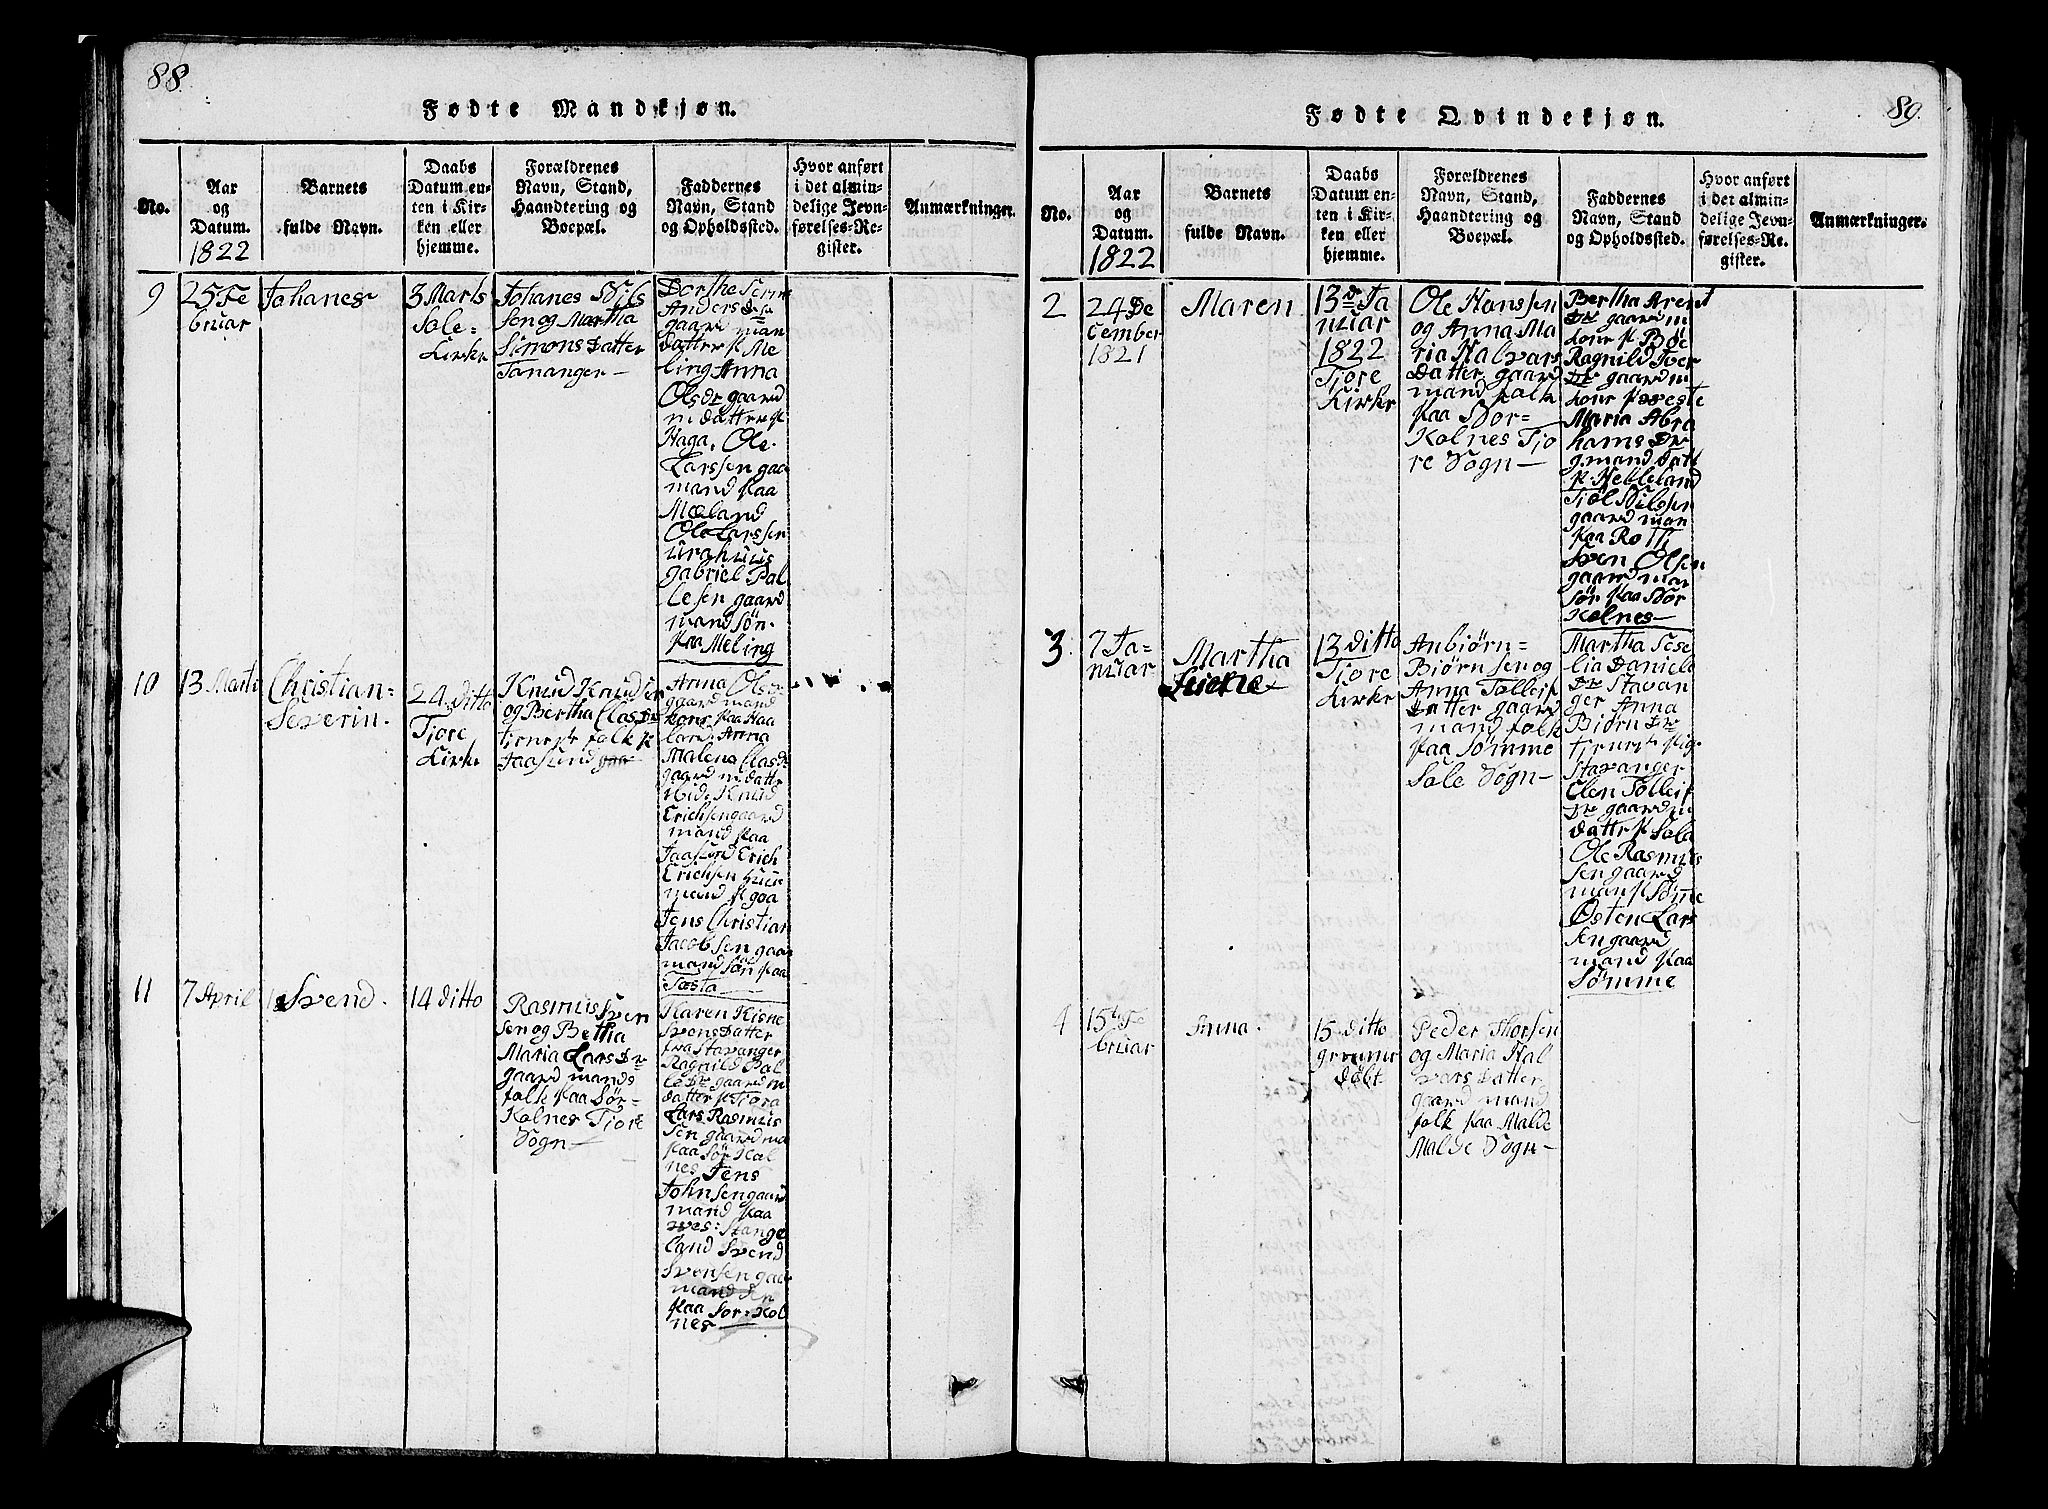 88.
Fødte Mandkjøn.
No.
Aar
og
Datum.
1822
Barnets
fulde Navn.
Daabs
Datum en-
ten i Kir-
ken eller
hjemme.
Forældrenes
Navn, Stand,
Haandtering og
Boepæl.
Faddernes
Navn, Stand
og Opholdssted.
Hvor anført
i det almin-
delige Jevn-
førelses-Re-
gister.
Anmærkninger.
9
25 Fe
bruar
Johanes
3 Marts
Sole-
Kirke
Johanes Nils
Sen og Martha
Simons Datter
Tananger-
Dorthe
Anders Dr
gaard man
datter p Me
ling Anna
Ols dr gaard
m datter p
Haga. Ole
Larssen gaa
mand paa
Mæland
Ole Larssen
gabriel Pal
lesen gaard
mand søn
paa Meling
10
13 Marti
Christian-
Severin.
24 ditto
Tjore
Kirke
Knud Knudsen
og Bertha Clas Dr
tienest folk p
Jaasund
Anna Ols
gaard mand
kone paa Haa
land. Anna
Malena Clas dr
gaard m datter
Knud
Erichsen gaard
mand paa
Jaasund Erich
Erichsen
mand p goa
Jens Christian
Jacobsen gaa
mand søn paa
Tæsta
11
7 April
Svend.
14 ditto
Rasmus Sven
sen og Betha
Maria Lars Dr
gaard mands
folk paa Sør-
Kolnes Tjore
Sogn-
Karen Kiene
Svens Datter
fra Stavanger
Ragnild Pal
le Dr gaard m
datter p Tjora
Lars Rasmus
sen gaard ma
paa Sør Kol
nes Jens
Johnsen gaard
mand paa
ves: Stange
land Svend
Svensen gaa
mand
paa Sør: Kol
nes
89.
Fødte Qvindekjøn.
No.
Aar
og
Datum.
1822
Barnets
fulde Navn.
Daabs
Datum en-
ten i Kir-
ken eller
hjemme.
Forældrenes
Navn, Stand,
Haandtering og
Boepæl.
Faddernes
Navn, Stand
og Opholdssted.
Hvor anført
i det almin-
delige Jevn-
førelses-Re-
gister.
Anmærkninger.
2
24 De
cember
1821
Maren
13 de Ja
nuar
1822
Tjore
Kirke
Ole Hanssen
og Anna Ma
ria Halvars
Datter gaard
mand folk
paa Nor-
Kolnes Tjo
re Sogn-
Bertha Arent
Dr gaard m
kone p Böe
Ragnild Iver
Dr gaard m
kone p veste
Maria Abra
hams Dr
g.mand Datt
p. Helleland
Tjøl Nilssen
gaard man
paa Rott
Sven Olsen
gaard man
sør paa Nor
Kolnes-
3
7 Ja-
nuar
Martha
13 ditto
Tjore
Kirke
Anbiørn-
Biørnsen og
Anna Tolleif
Datter gaard
mand folk
paa Sømme
Sole Sogn-
Martha Sese
lia Daniels
Dr Stavan
ger Anna
Biørn Dr
tienest pige
Stavanger
Elen Tolleif
Dr gaard m
datter p Sola
Ole Rasmus
sen gaard
man p Sømme
Østen Lars
sen gaard
mand paa
Sømme
4
15 Fe
bruar
Anna.
15 ditto
døbt
Peder Thorsen
og Maria Hal
vars Datter
gaard mand
folk paa Malde
Malde Sogn-